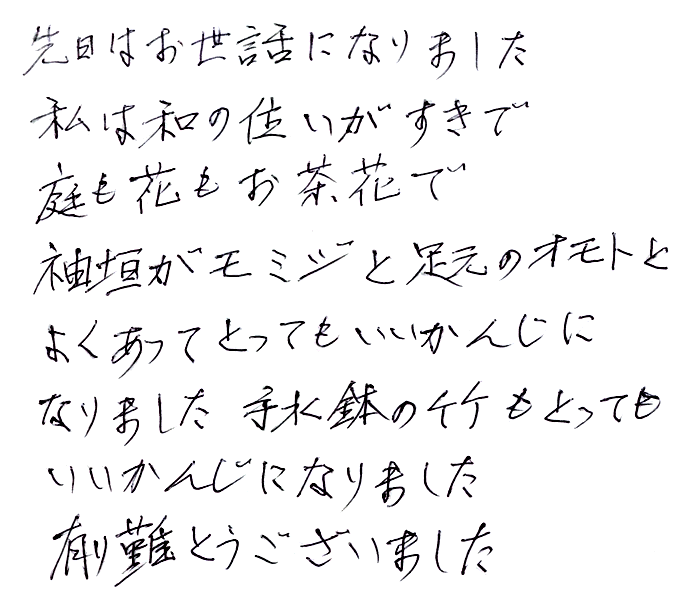 先日はお世話になりました
私は和の位いがすきで
庭も花もお茶花で
袖垣がモミジと足元のオモトと
よくあってとってもいいかんじに
なりました 手水鉢の竹もとっても
いいかんじになりました
有り難とうございました